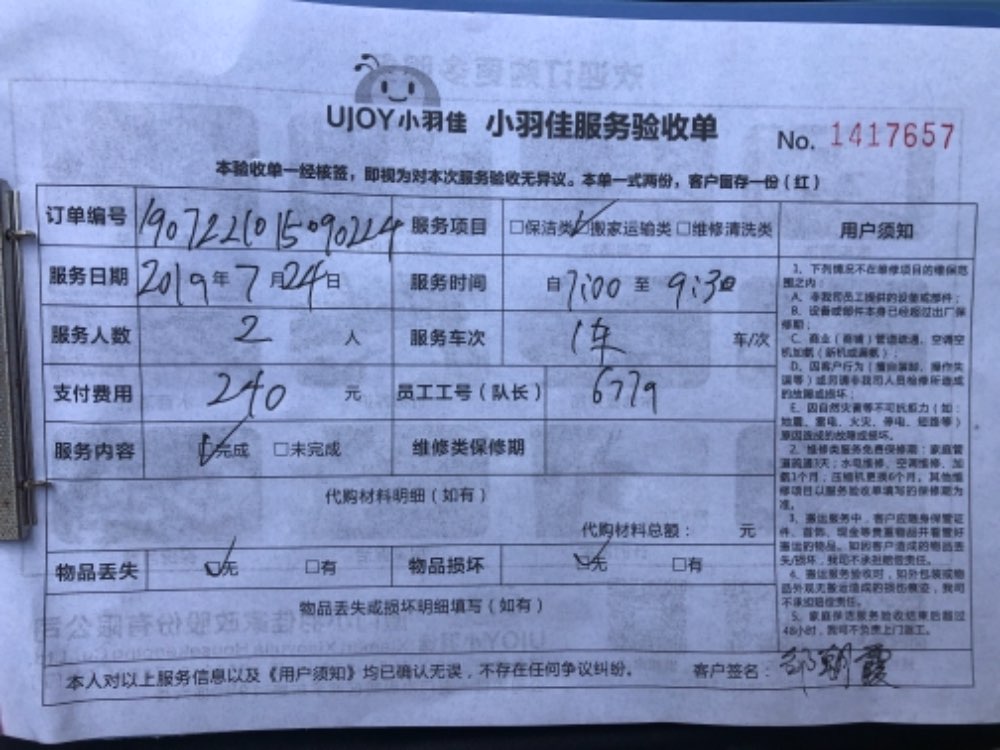 UJOY小羽佳 小羽佳服务验收单 No. 1417657
本验收单一经核签，即视为对本次服务验收无异议。本单一式两份，客户留存一份（红）
订单编号 1907221015090224 服务项目 □保洁类 ☑搬家运输类 □维修清洗类
服务日期 2019年7月24日 服务时间 自7:00至9:30
服务人数 2 人 服务车次 1车 车/次
支付费用 240 元 员工工号（队长） 6779
服务内容 ☑完成 □未完成 维修类保修期
代购材料明细（如有）
代购材料总额： 元
物品丢失 ☑无 □有 物品损坏 ☑无 □有
物品丢失或损坏明细填写（如有）
本人对以上服务信息以及《用户须知》均已确认无误，不存在任何争议纠纷。 客户签名：邹朝霞
用户须知
1、下列情况不在维修项目的维保范
围之内：
A、非我司员工提供的设备或部件；
B、设备或部件本身已经超过出厂保
修期；
C、商业（商铺）管道疏通、空调空
机加氨（新机或漏氨）；
D、因客户行为（擅自拆卸、操作失
误等）或另请非我司人员检修所造成
的故障或损坏；
E、因自然灾害等不可抗力（如：
地震、雷电、火灾、停电、短路等）
原因造成的故障或损坏。
2、维修类服务免费保修期：家庭管
道疏通3天；水电维修、空调维修、加
氨1个月，压缩机更换6个月。其他维
修项目以服务验收单填写的保修期为
准。
3、搬运服务中，客户应随身保管证
件、首饰、现金等贵重物品并看管好
搬运的物品。如因客户造成的物品丢
失/损坏，我司不承担赔偿责任。
4、搬运服务验收时，如外包装或物
品外观无搬运造成的损伤痕迹，我司
不承担赔偿责任。
5、家庭保洁服务验收结束后超过
48小时，我司不负责上门返工。